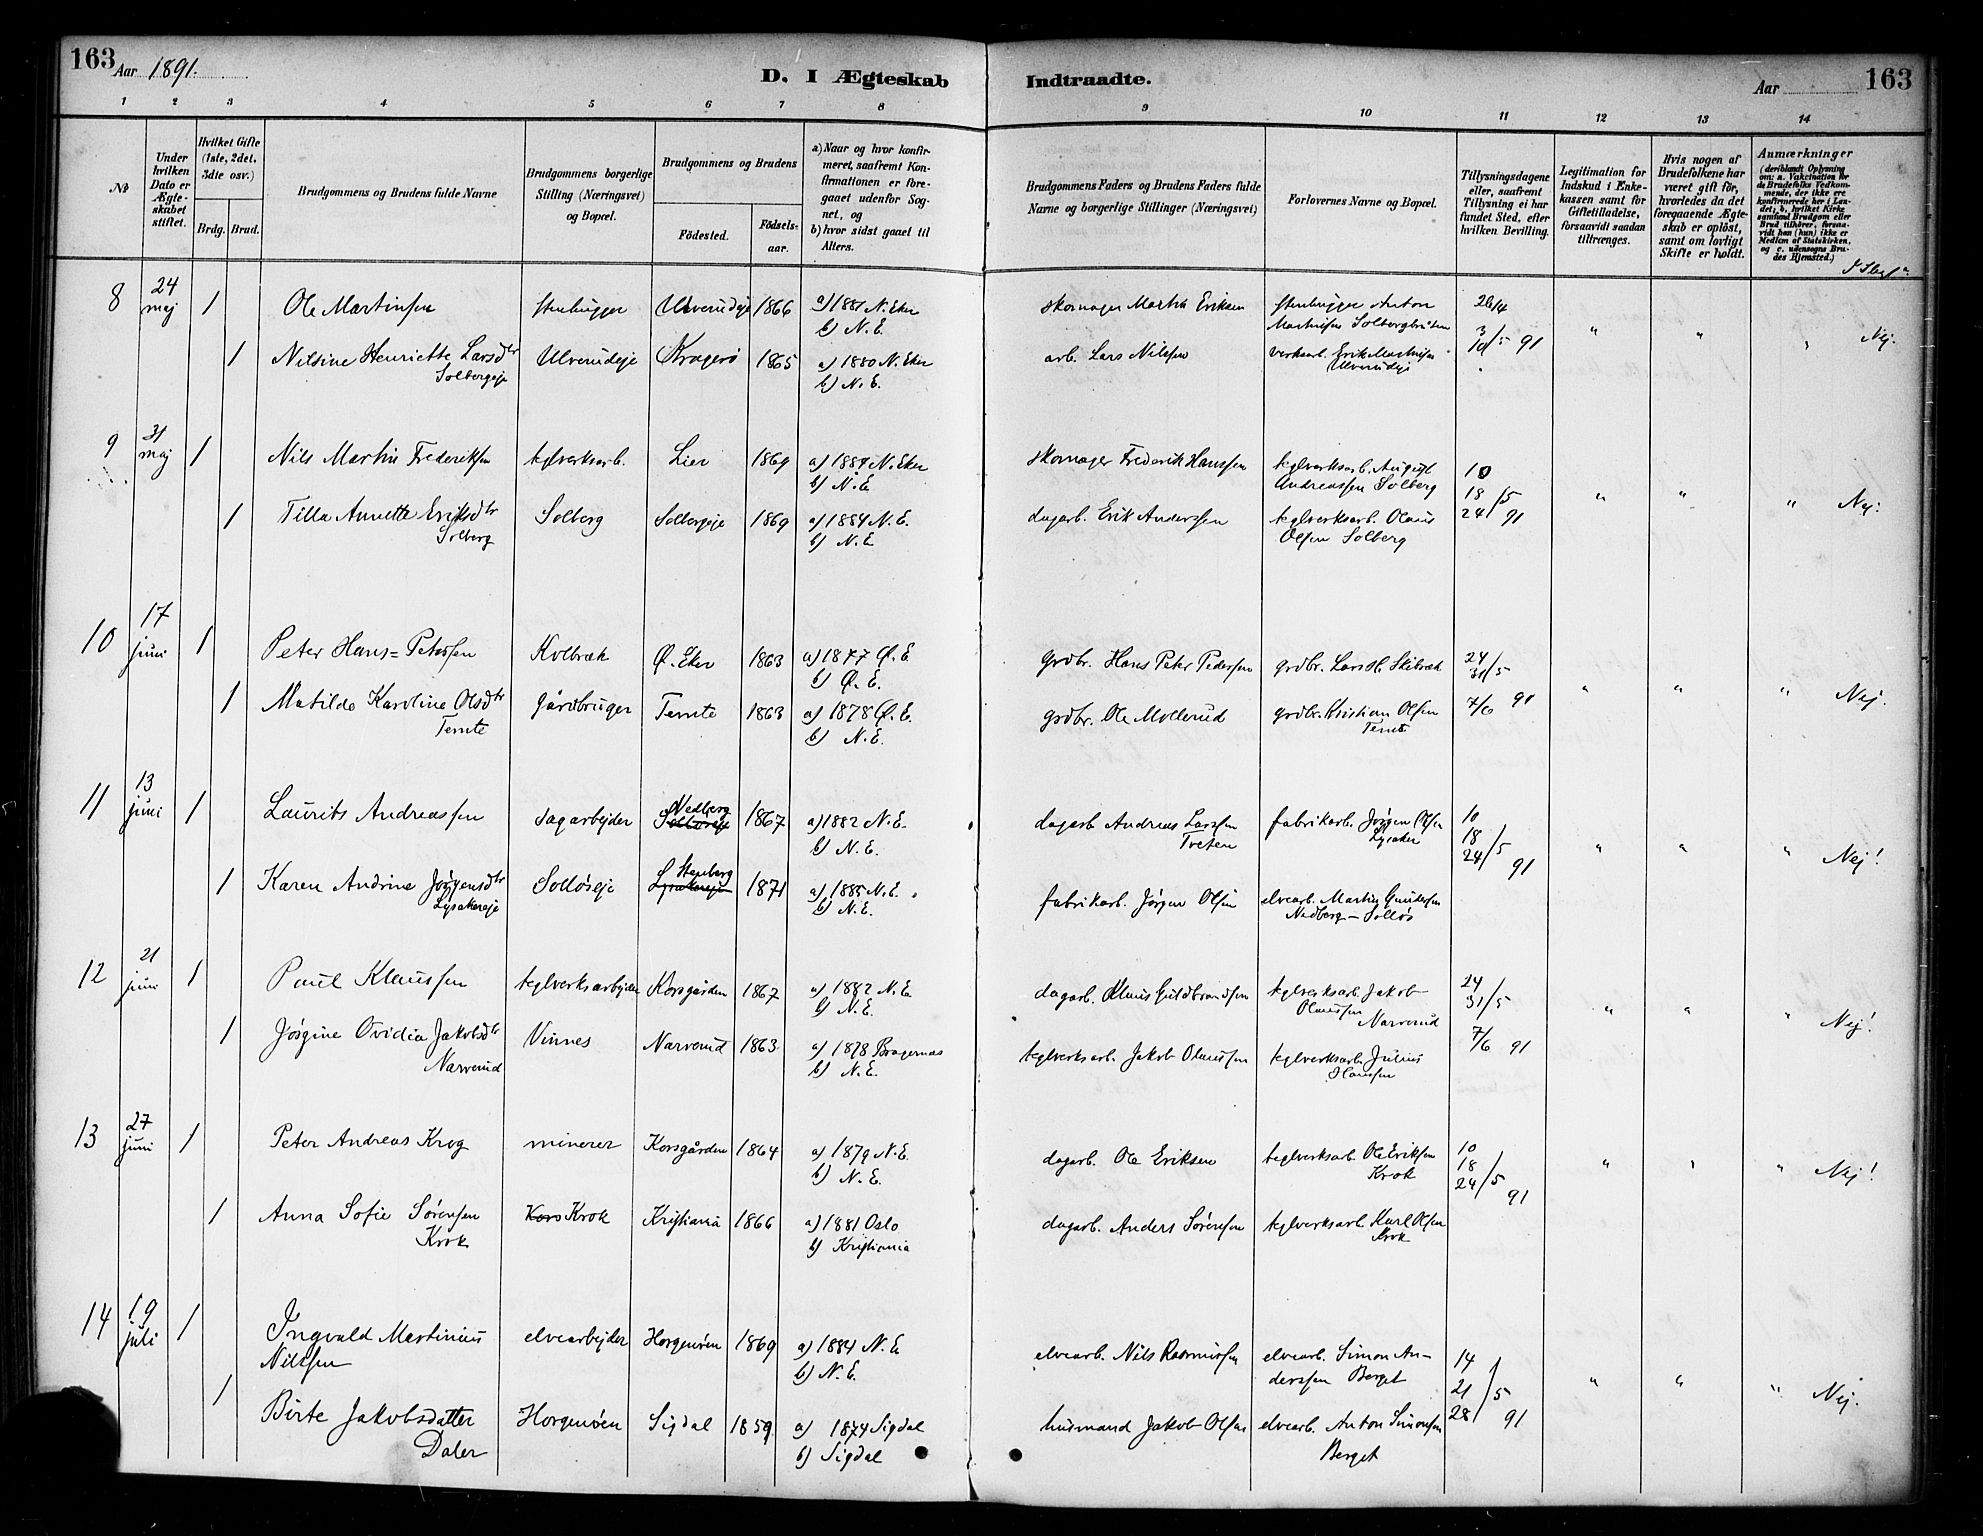 163 Aar 1891. D. I Ægteskab Indtraadte. Aar 163
1 2 3 4 5 6 7 8 9 10 11 12 13 14
№
Under hvilken Dato er Ægteskabet stiftet.
Hvilket Gifte (1ste, 2det, 3die osv.)
Brdg. Brud.
Brudgommens og Brudens fulde Navne
Brudgommens borgerlige Stilling (Næringsvei) og Bopæl.
Brudgommens og Brudens
Födested. Födsels-aar.
a) Naar og hvor konfirmeret, saafremt Konfirmationen er foregaaet udenfor Sognet, og
b) hvor sidst gaaet til Alters.
Brudgommens Faders og Brudens Faders fulde Navne og borgerlige Stillinger (Næringsvei)
Forlovernes Navne og Bopæl.
Tillysningsdagene eller, saafremt Tillysning ei har fundet Sted, efter hvilken Bevilling.
Legitimation for Indskud i Enkekassen samt for Giftetilladelse, forsaavidt saadan tiltrænges.
Hvis nogen af Brudefolkene har været gift för, hvorledes da det foregaaende Ægteskab er oplöst, samt om lovligt Skifte er holdt.
Anmærkninger
(deriblandt Oplysning om: a. Vakcination for de Brudefolks Vedkommende, der ikke ere konfirmerede her i Landet; b. hvilket Kirkesamfund Brudgom eller Brud tilhörer, forsaavidt han (hun) ikke er Medlem af Statskirken, og c. udensogns Brudes Hjemsted.)
8 24 maj 1 Ole Martinsen stenhugger Ulverudeje 1866 a) 1881 N. Eker b) N. E. skomager Martin Eriksen stenhugger Anton Martinsen Solbergbråten 26/4
1 Nilsine Henriette Larsdtr Solbergeje Ulverudeje Kragerø 1865 a) 1880 N. Eker b) N. E. arb. Lars Nilssen verksarb. Erik Martinsen Ulverudeje 3 10/5 91 " " " Nej.
9 31 maj 1 Nils Martin Frederiksen teglverksarb. Lier 1869 a) 1884 N. Eker b) N. E skomager Frederik Hanssen teglverksarb. August Andreassen Solberg 10
1 Tilla Annette Eriksdtr Solberg Solberg Solbergeje 1869 a) 1884 N. E. b) N. E dagarb. Erik Anderssen teglverksarb. Olaus Olsen Solberg 18/5 24 91 " " " Nej.
10 17 juni 1 Peter Hans=Petersen Kolbræk Ø. Eker 1863 a) 1877 Ø. E b) Ø. E. grdbr. Hans Peter Pedersen grdbr. Lars Skibræk 24 31/5
1 Matilde Karoline Olsdtr Temte gårdbruger Temte 1863 a) 1878 Ø. E. b) N. E. grdbr. Ole Mollerud grdbr. Kristian Olsen Temte 7/6 91 " " " Nej.
11 13 juni 1 Laurits Andreassen sagarbejder Nedberg 1867 a) 1882 N. E. b) N. E. dagarb Andreas Larssen Treten fabrikarb. Jørgen Olsen Lysaker 10 18 24/5 91 " " " Nej!
1 Karen Andrine Jørgensdtr Lysakereje Solløseje Stenberg Lysakereje 1871 a) 1885 N. E. b) N. E. fabrikarb. Jørgen Olsen elvearb. Martin Gundersen Nedberg - Solløs
12 21 juni 1 Paul Klaussen teglverksarbejder Korsgården 1867 a) 1882 N. E b) N. E. dagarb. Klaus Guldbrandsen teglverksarb. Jakob Olaussen Narverud 24 31/5
1 Jørgine Ovidia Jakobsdtr Narverud Vinnes Narverud 1863 a) 1878 Bragernæs b) N. E. teglverksarb. Jakob Olaussen teglverksarb. Julius Hanssen 7/6 91 " " " Nej!
13 27 juni 1 Peter Andreas Krog minerer Korsgården 1864 a) 1879 N. E. b) N. E. dagarb. Ole Eriksen teglverksarb. Ole Eriksen Krok 10 18 24/5 91 " " " Nej!
1 Anna Sofie Sørensen Krok Kors Krok Kristiania 1866 a) 1881 Oslo b) Kristiania dagarb. Anders Sørensen teglverksarb. Karl Olsen Krok
14 19 juli 1 Ingvald Martinius Nilssen elvearbejder Horgenøen 1869 a) 1884 N. E b) N. E. elvearb. Nils Rasmussen elvearb. Simon Anderssen Berget 14
1 Birte Jakobsdatter Daler Horgenøen Sigdal 1859 a) 1874 Sigdal b) Sigdal husmand Jakob Olsen elvearb. Anton Simonsen Berget 21/5 28 91 " " " Nej.